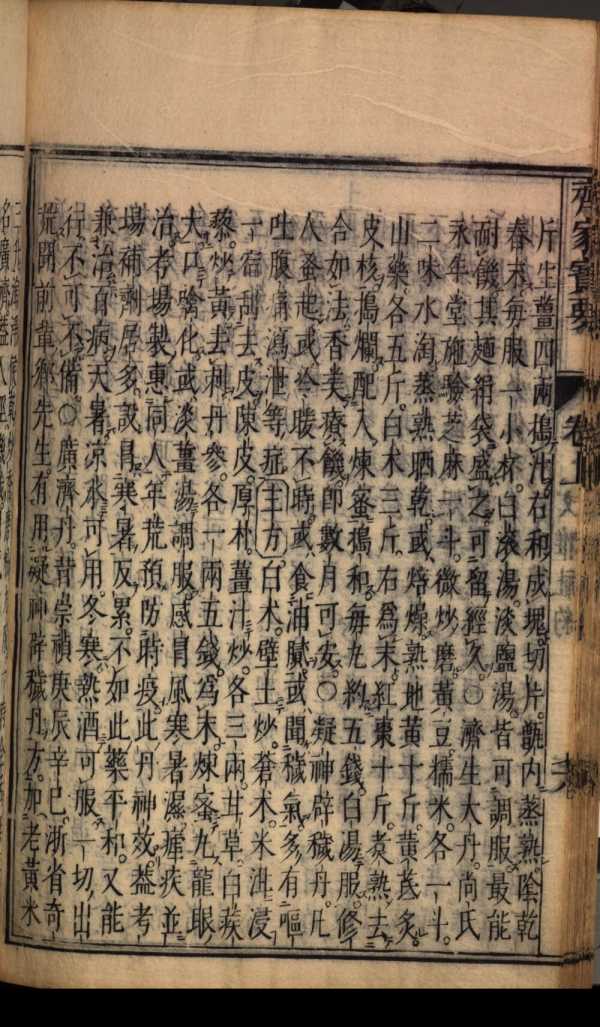 齊家寶要
卷上
斤生薑四兩搗汁右和成塊切片甑內蒸熟陰乾
春末每服一小杯白滾湯淡鹽湯皆可調服最能
耐饑其麵絹袋盛之可留經久○濟生大丹尚氏
永年堂施驗芝麻一斗微炒磨黃豆糯米各一斗
二味水淘蒸熟晒乾或焙燥熟地黃十斤黃茋炙
山藥各五斤白术三斤右爲末紅棗十斤煑熟去
皮核搗爛配入煉蜜搗和每丸約五錢白湯服修
合如法香美療饑卽數月可安○凝神辟穢丹凡
人蚤起或冷暖不時或食油膩或聞穢氣多有嘔
吐腹痛瀉泄等症主方白术壁土炒蒼术米泔浸
一宿刮去皮陳皮厚朴薑汁炒各三兩甘草白蒺
藜炒黃去刺丹參各一兩五錢爲末煉蜜丸龍眼
大口噙化或淡薑湯調服感冒風寒暑濕瘧疾並
治考場製惠同人年荒預防時疫此丹神效葢考
場補劑居多設冒寒暑反累不如此藥平和又能
兼治百病天暑凉水可用冬寒熱酒可服一切出
行不可不備○廣濟丹昔崇禎庚辰辛巳浙省奇
荒開前輩鄉先生有用凝神辟穢丹方加老黃米